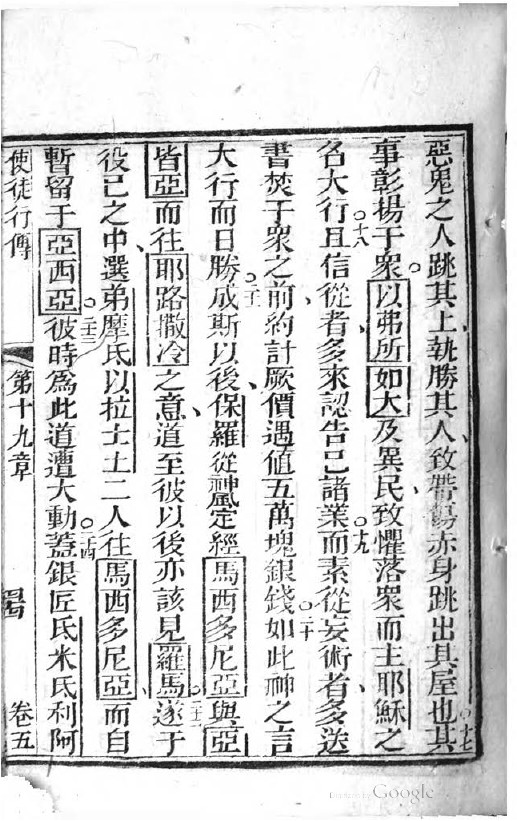 惡鬼之人跳其上執勝其人致帶傷赤身跳出其屋也○十七其
事彰揚于衆以弗所如大及異民致懼落衆而主耶穌之
名大行○十八且信從者多來認告己諸業○十九而素從妄術者多送
書焚于衆之前約計厥價遇值五萬塊銀錢○二十如此神之言
大行而日勝○二一成斯以後保羅從神風定經馬西多尼亞與亞
皆亞而往耶路撒冷之意道至彼以後亦該見羅馬○二二遂于
役己之中選弟摩氐以拉士土二人往馬西多尼亞而自
暫留于亞西亞○二三彼時爲此道遭大動○二四蓋銀匠氐米氐利阿
使徒行傳 第十九章 卷五
Google